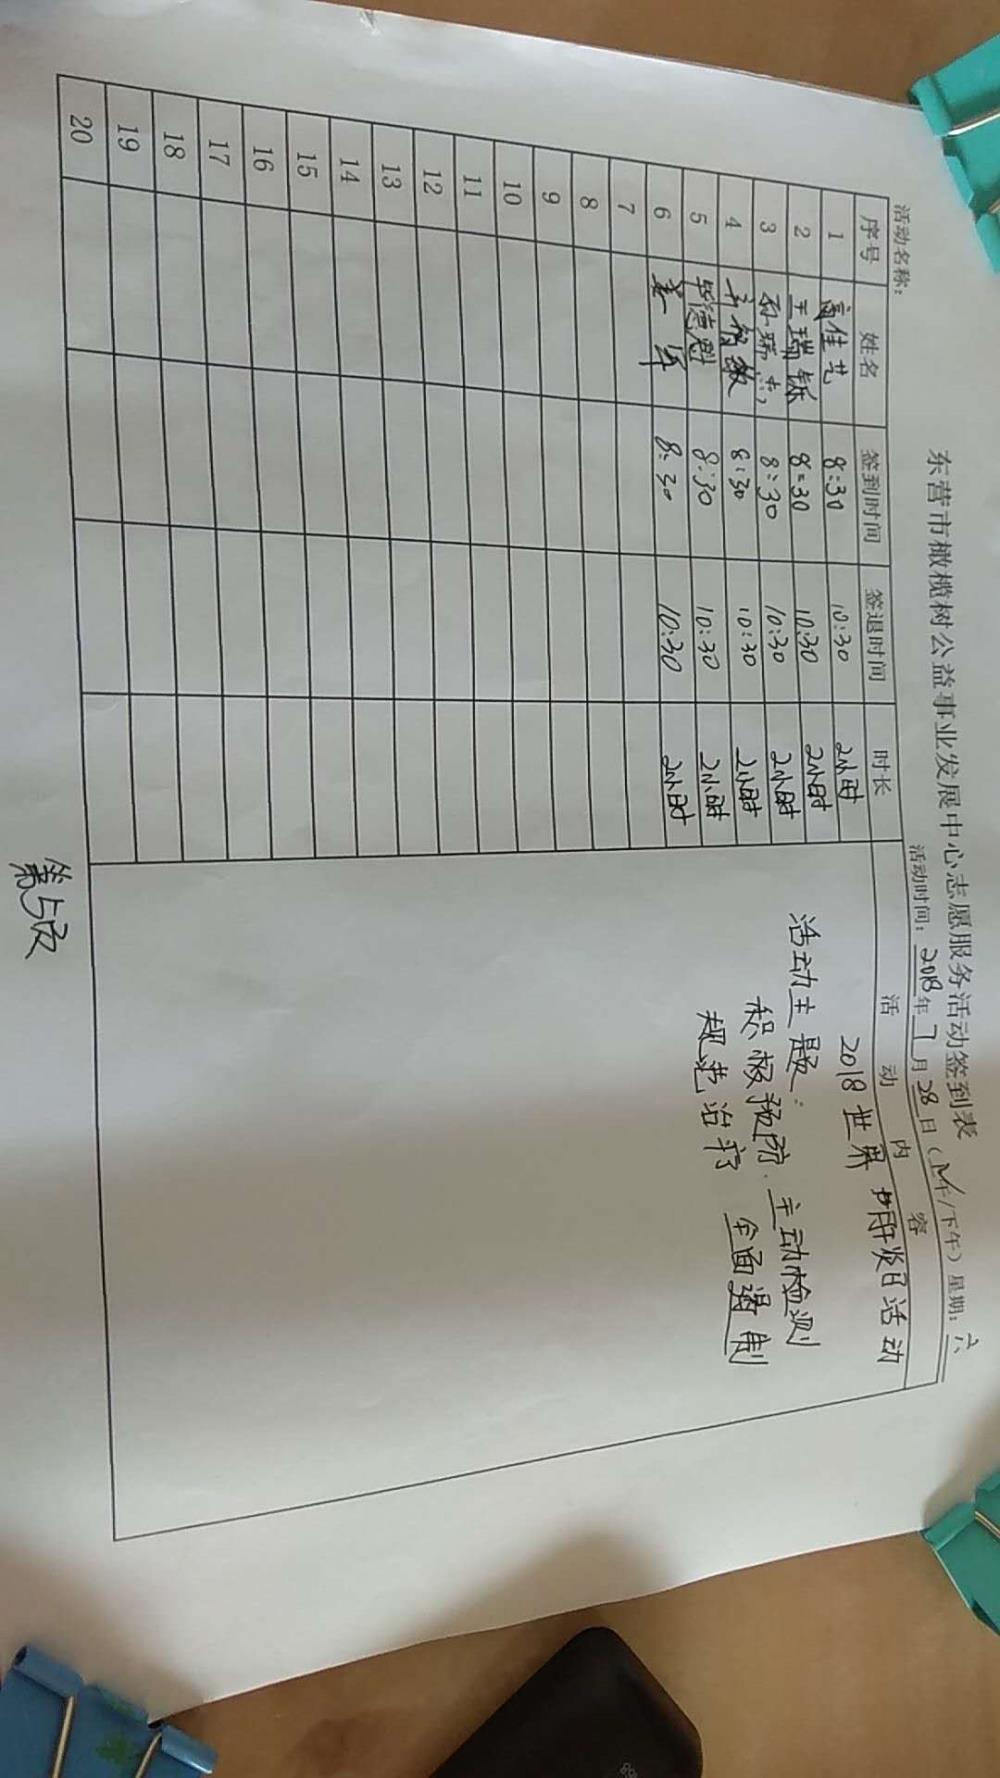 东营市橄榄树公益事业发展中心志愿服务活动签到表
活动名称： 活动时间：2018年7月28日（上午/下午）星期：六
序号 姓名 签到时间 签退时间 时长 活动内容
1 高佳艺 8:30 10:30 2小时
2 王瑞铄 8:30 10:30 2小时
3 孙瑞 8:30 10:30 2小时
4 8:30 10:30 2小时
5 毕德尉 8:30 10:30 2小时
6 姜军 8:30 10:30 2小时
7
8
9
10
11
12
13
14
15
16
17
18
19
20
2018世界肝炎日活动
活动主题：
积极预防.主动检测
规范治疗 全面遏制
第5页